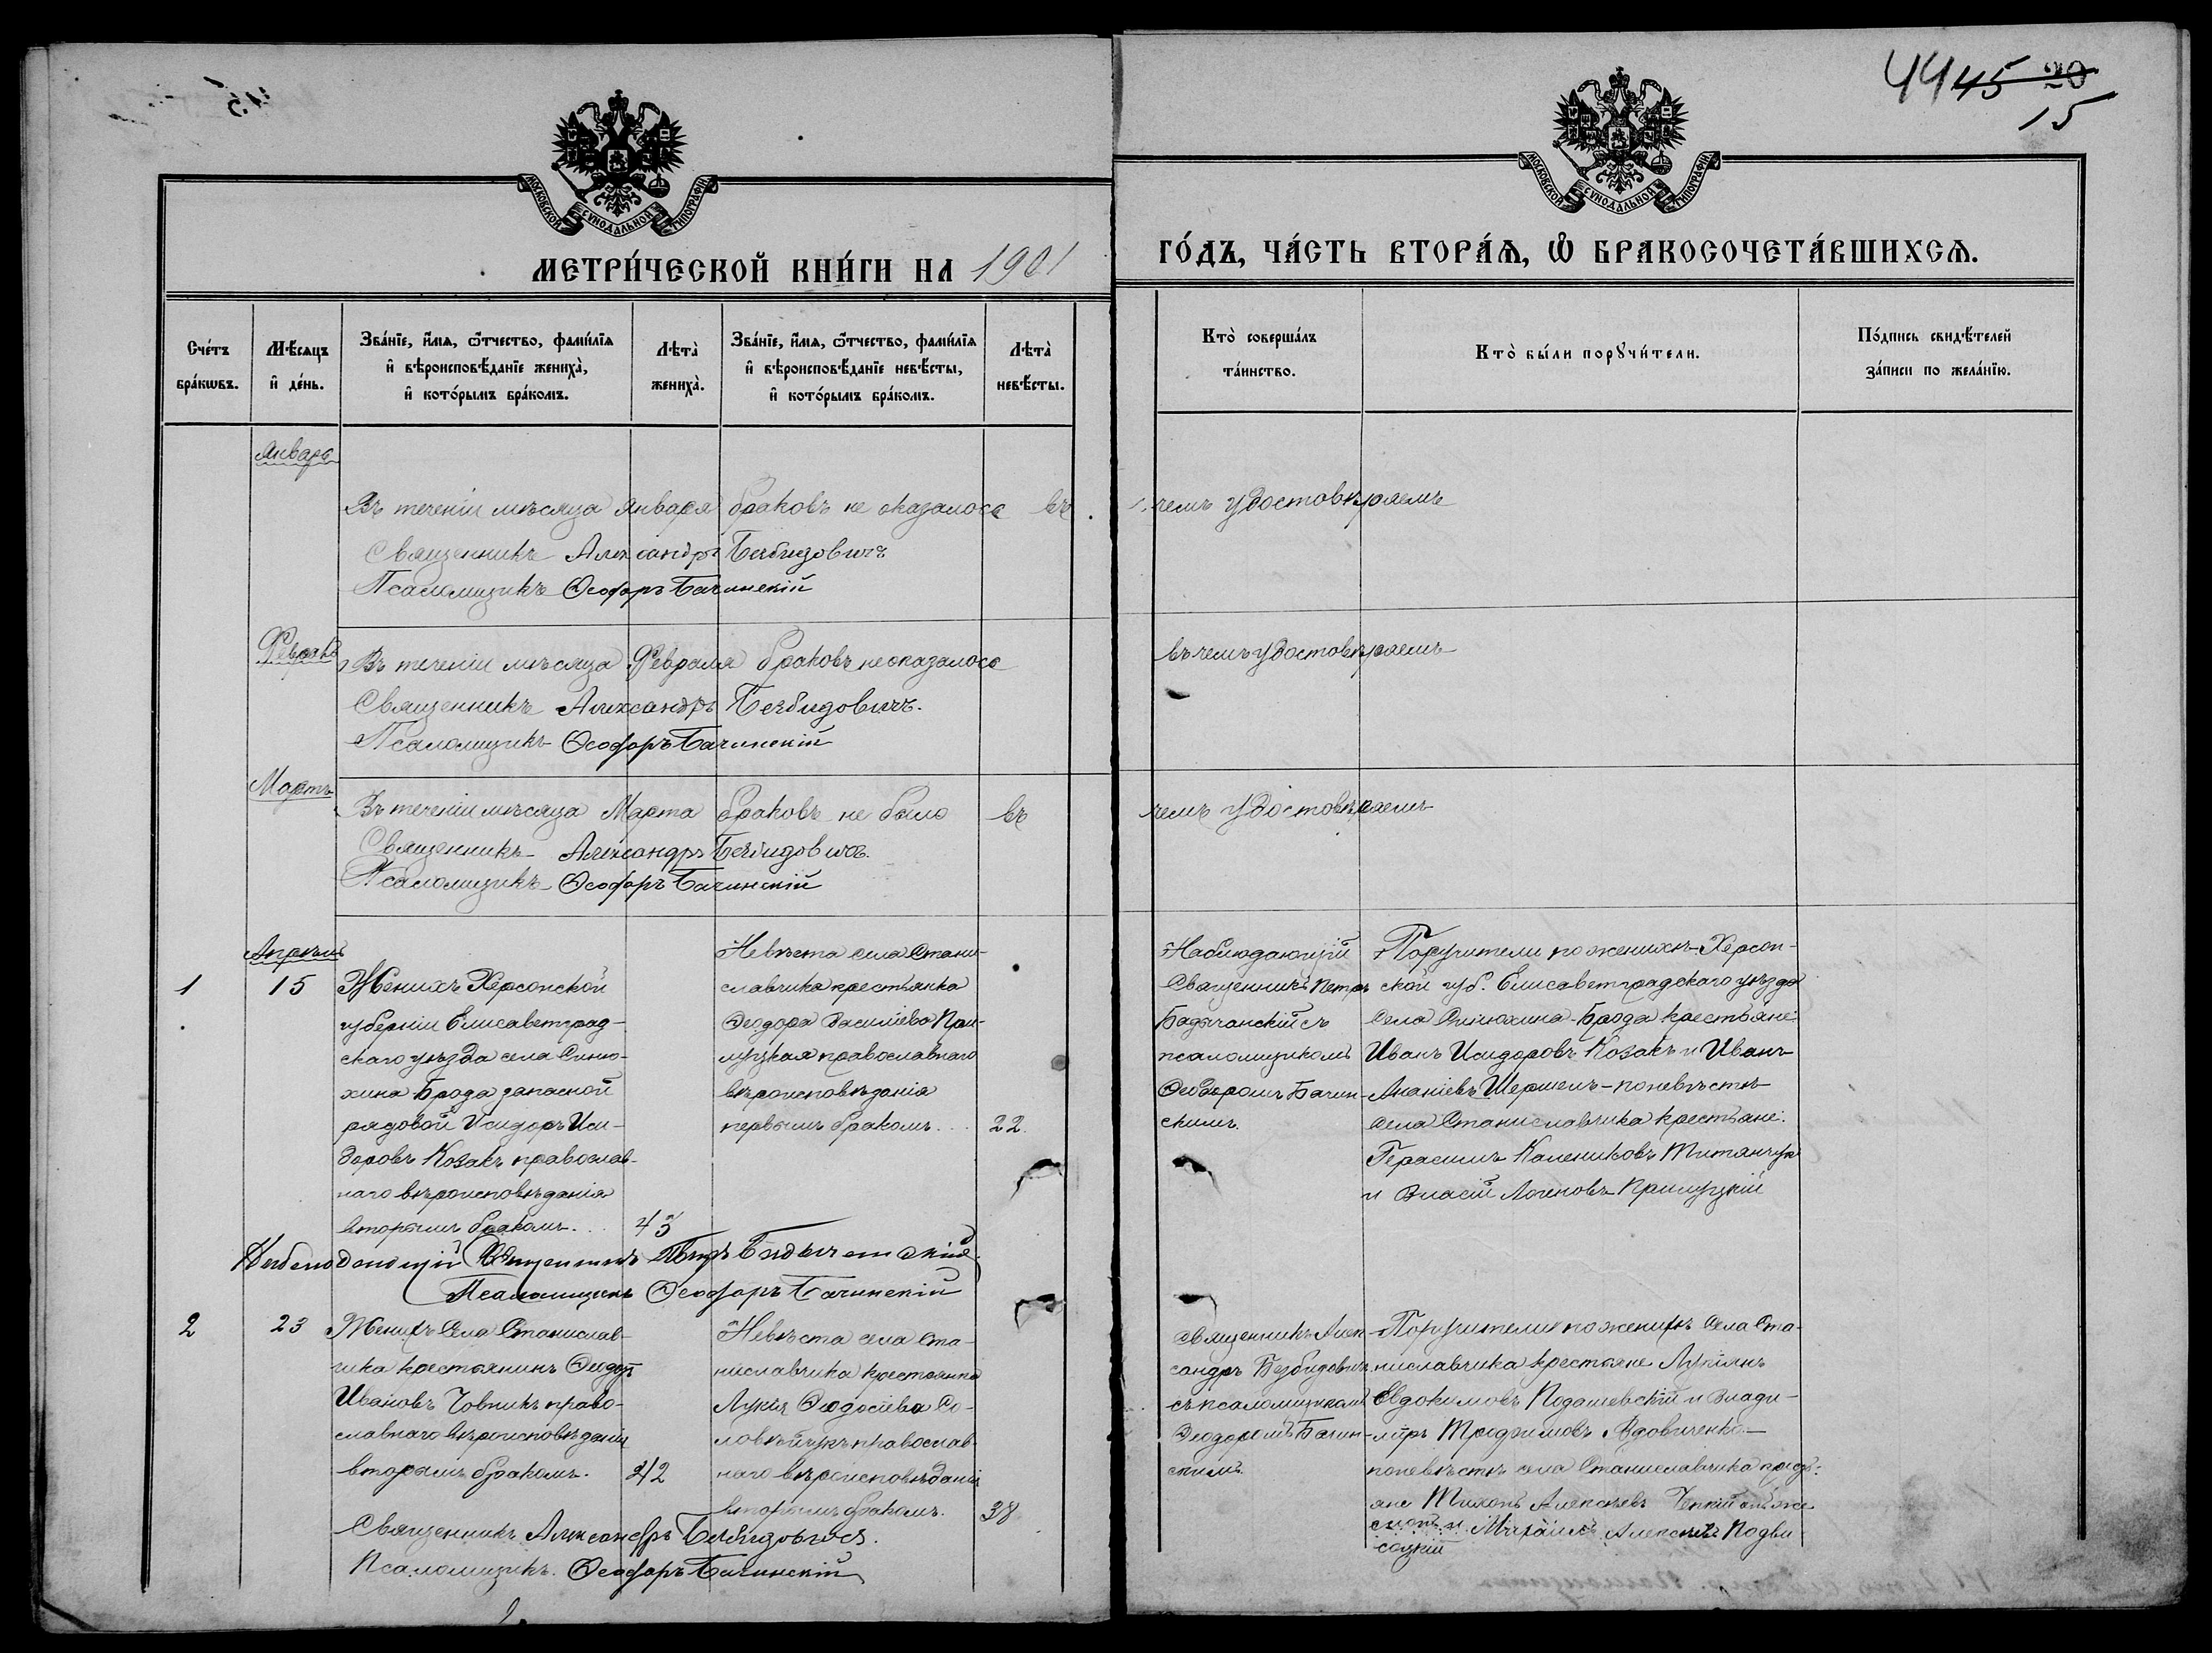 44 45 20
15
МОСКОВСКОЙ СѴНОДАЛЬНОЙ ТИПОГРАФІИ
МОСКОВСКОЙ СѴНОДАЛЬНОЙ ТИПОГРАФІИ
МЕТРИ́ЧЕСКОЙ КНИ́ГИ НА 1901
ГО́ДЪ, ЧА́СТЬ ВТОРА́Ѧ, Ѡ҆ БРАКОСОЧЕТА́ВШИХСѦ.
Сче́тъ
бра́кѡвъ.
Мѣ́сѧцъ
и҆ де́нь.
Зва́нїе, и҆́мѧ, ѻ҆́тчество, фами́лїѧ
и҆ вѣроисповѣ́данїе жениха̀,
и҆ кото́рымъ бра́комъ.
Лѣта̀
жениха̀.
Зва́нїе, и҆́мѧ, ѻ҆́тчество, фами́лїѧ
и҆ вѣроисповѣ́данїе невѣ́сты,
и҆ кото́рымъ бра́комъ.
Лѣта̀
невѣ́сты.
Кто̀ соверша́лъ
та́инство.
Кто̀ бы́ли порꙋчи́тели.
По́дпись свидѣ́телей
за́писи по жела́нїю.
Январь
Въ теченіи мѣсяца Января браковъ не оказалось въ чемъ удостовѣряемъ
Священникъ Александръ Безбидовичъ
Псаломщикъ Ѳеодоръ Бачинскій
Февраль
Въ теченіи мѣсяца Февраля браковъ не оказалось въ чемъ удостовѣряемъ
Священникъ Александръ Безбидовичъ.
Псаломщикъ Ѳеодоръ Бачинскій
Мартъ
Въ теченіи мѣсяца Марта браковъ не было въ чемъ удостовѣряемъ
Священникъ Александръ Безбидовичъ.
Псаломщикъ Ѳеодоръ Бачинскій
Апрѣль
1
15
Женихъ Херсонской
губерніи Елисаветград-
скаго уѣзда села Синю-
хина Брода запасной
рядовой Исидоръ Иси-
доровъ Козакъ православ-
наго вѣроисповѣданія
вторымъ бракомъ...
43
Невѣста села Стани-
славчика крестьянка
Ѳеодора Василіева При-
луцкая православнаго
вѣроисповѣданія
первымъ бракомъ...
22
Наблюдающій
Священникъ Петръ
Бадычанскій съ
псаломщикомъ
Ѳеодоромъ Бачин-
скимъ.
Поручители по женихѣ - Херсон-
ской губ. Елисаветградскаго уѣзда
села Синюхина-Брода крестьяне:
Иванъ Исидоровъ Козакъ и Иванъ
Ананіевъ - по невѣстѣ
села Станиславчика крестьяне:
Герасимъ Калениковъ Титянчук
и Власій Логиновъ Прилуцкій
Наблюдающій Священникъ Петръ Бадычанскій.
Псаломщикъ Ѳеодоръ Бачинскій
2
23
Женихъ села Станислав-
чика крестьянинъ Ѳеодоръ
Ивановъ Човникъ право-
славнаго вѣроисповѣданія
вторымъ бракомъ.
42
Невѣста села Ста-
ниславчика крестьянка
Лукія Ѳеодосіева Со-
ловѣйчукъ православ-
наго вѣроисповѣданія
вторымъ бракомъ.
38
Священникъ Алек-
сандръ Безбидовичъ
съ псаломщикомъ
Ѳеодоромъ Бачин-
скимъ.
Поручители по женихѣ села Ста-
ниславчика крестьяне Лукіянъ
Евдокимовъ Подашевскій и Влади-
міръ Трофимовъ Вдовиченко -
по невѣстѣ села Станиславчика кресть-
яне Алексѣевъ
и Михаилъ Алексѣевъ Подви
соцкій
Священникъ Александръ Безбидовичъ.
Псаломщикъ. Ѳеодоръ Бачинскій